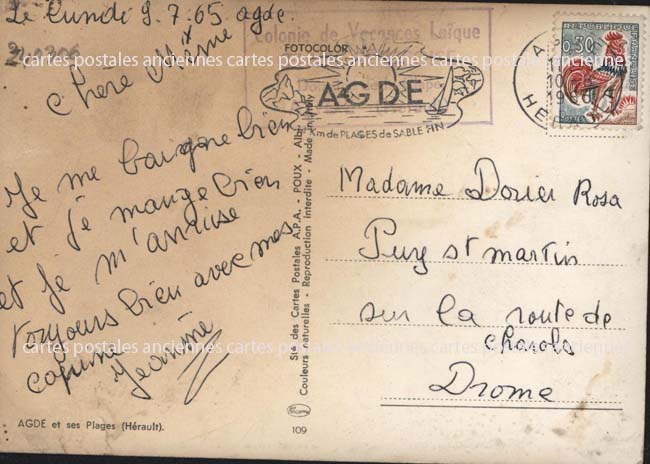 Le Lundi 9.7.65 agde.
Chère Mème
Je me baigne bien
et je mange bien
et je m'amuse
toujours bien avec mes
copines
Jeannine
AGDE et ses Plages (Hérault).
Colonie de Vacances Laïque
FOTOCOLOR
AGDE
Km de PLAGES de SABLE FIN
Sté des Cartes Postales A.P.A. - POUX - Albi
Couleurs naturelles - Reproduction interdite - Made in
109
REPUBLIQUE FRANÇAISE
0,30
POSTES
Madame Dorier Rosa
Puy st martin
sur la route de
charols
Drome
cartes postales anciennes cartes postales anciennes cartes postales anciennes